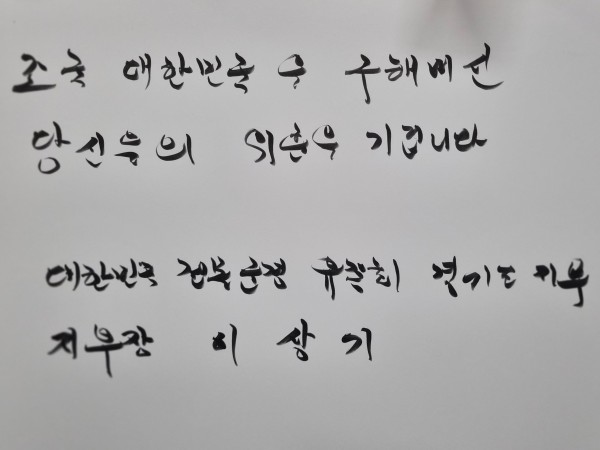 조국 대한민국을 구해내신
당신들의 위훈을 기립니다
대한민국 전몰군경 유족회 경기도 지부
지부장 이상기